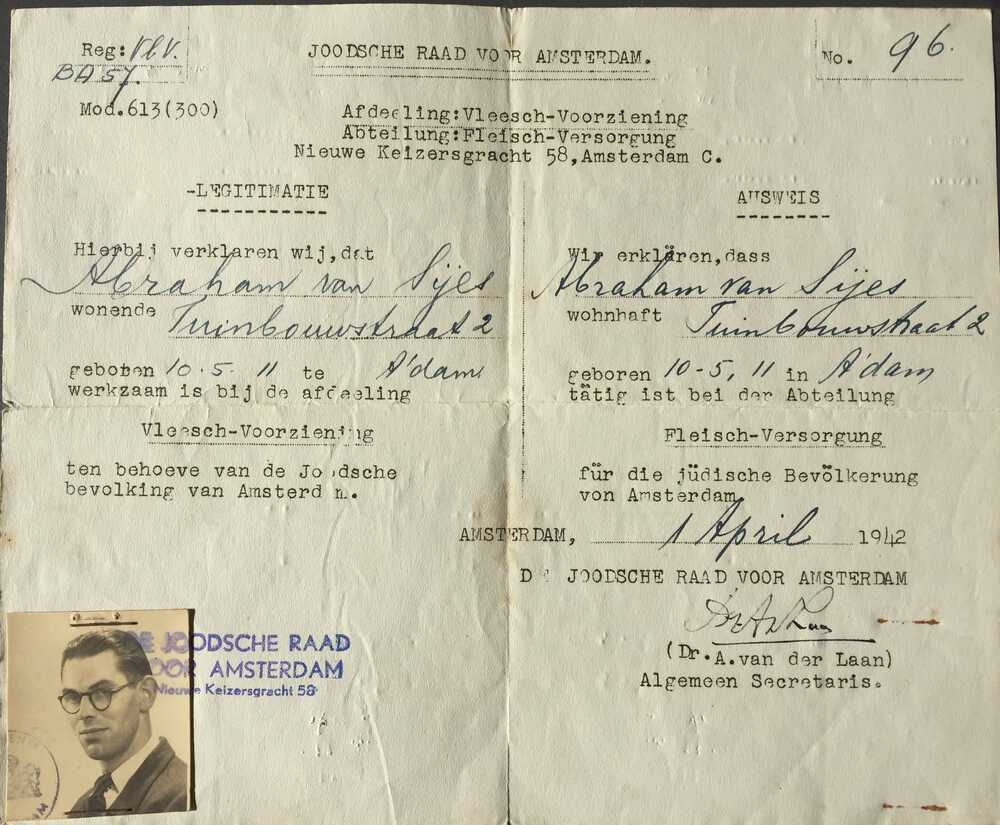 Reg: VlV.
BA 57.
Mod.613(300)
JOODSCHE RAAD VOOR AMSTERDAM.
No. 96.
Afdeeling:Vleesch-Voorziening
Abteilung:Fleisch-Versorgung
Nieuwe Keizersgracht 58,Amsterdam C.
-LEGITIMATIE
Hierbij verklaren wij,dat
Abraham van Sijes
wonende Tuinbouwstraat 2
geboren 10-5-11 te A'dam
werkzaam is bij de afdeeling
Vleesch-Voorziening
ten behoeve van de Joodsche
bevolking van Amsterdam.
AUSWEIS
Wir erklären,dass
Abraham van Sijes
wohnhaft Tuinbouwstraat 2
geboren 10-5,11 in A'dam
tätig ist bei der Abteilung
Fleisch-Versorgung
für die jüdische Bevölkerung
von Amsterdam
AMSTERDAM, 1 April 1942
DE JOODSCHE RAAD VOOR AMSTERDAM
(Dr.A.van der Laan)
Algemeen Secretaris.
DE JOODSCHE RAAD
VOOR AMSTERDAM
Nieuwe Keizersgracht 58